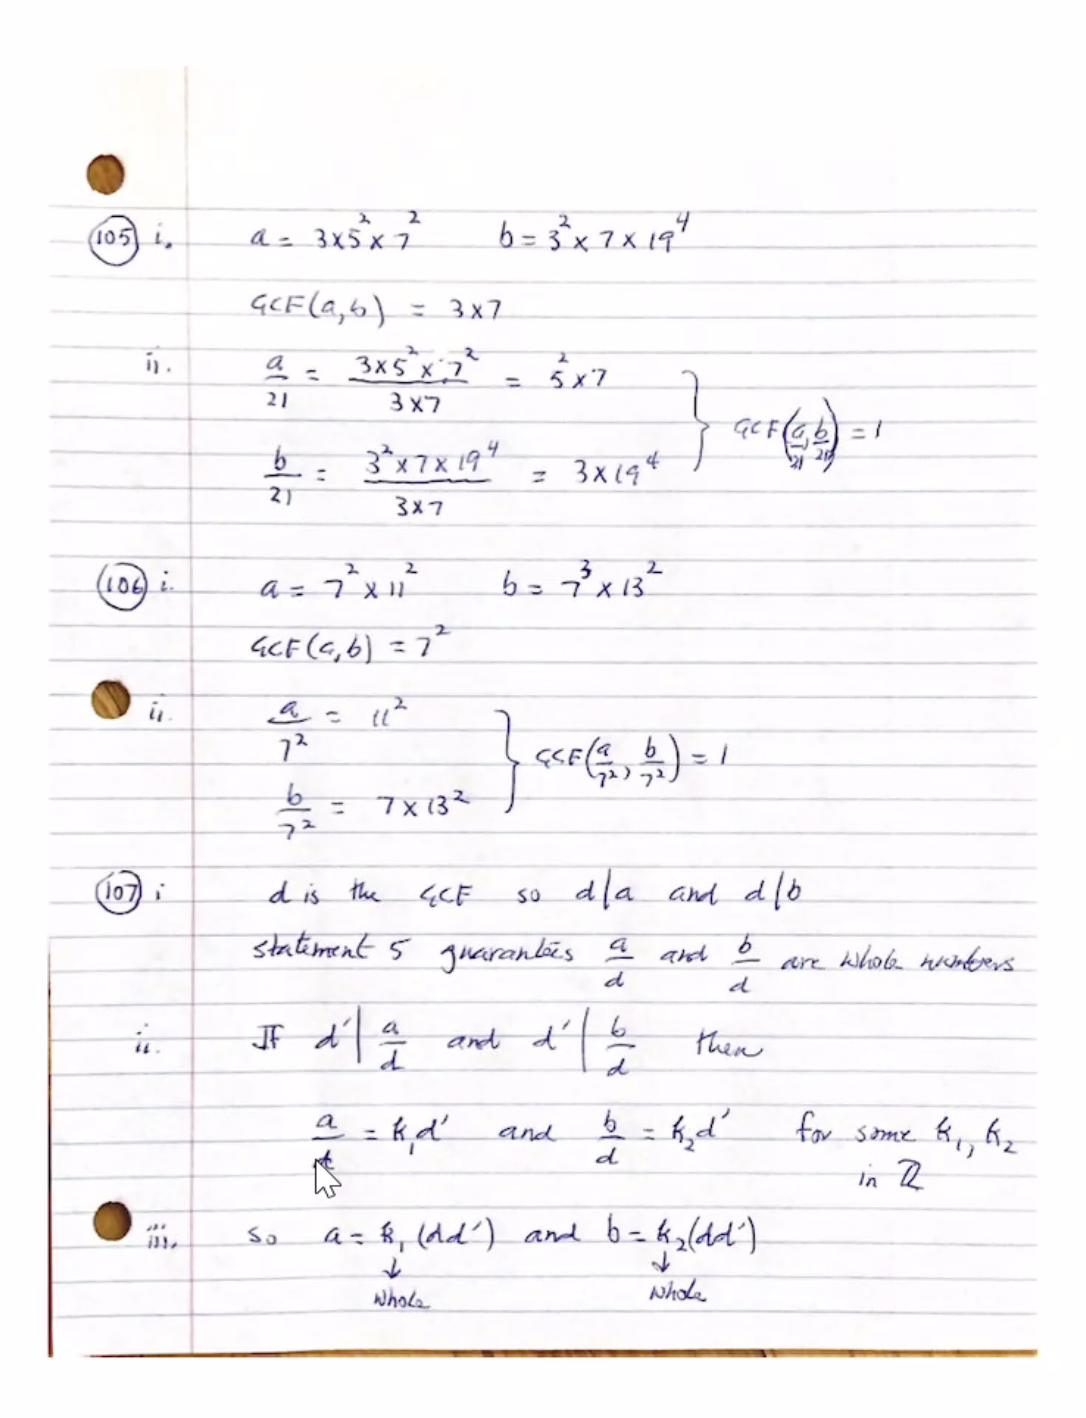 105 i. a = 3×5²×7² b = 3²×7×19⁴
GCF(a,b) = 3×7
ii. a/21 = (3×5²×7²)/(3×7) = 5²×7
b/21 = (3²×7×19⁴)/(3×7) = 3×19⁴ } GCF(a/21, b/21) = 1
106 i. a = 7²×11² b = 7³×13²
GCF(a,b) = 7²
ii. a/7² = 11²
b/7² = 7×13² } GCF(a/7², b/7²) = 1
107 i d is the GCF so d|a and d|b
statement 5 guarantees a/d and b/d are whole numbers
ii. If d'|a/d and d'|b/d then
a/d = k₁d' and b/d = k₂d' for some k₁, k₂
in ℤ
iii. so a = k₁(dd') and b = k₂(dd')
↓ ↓
whole whole